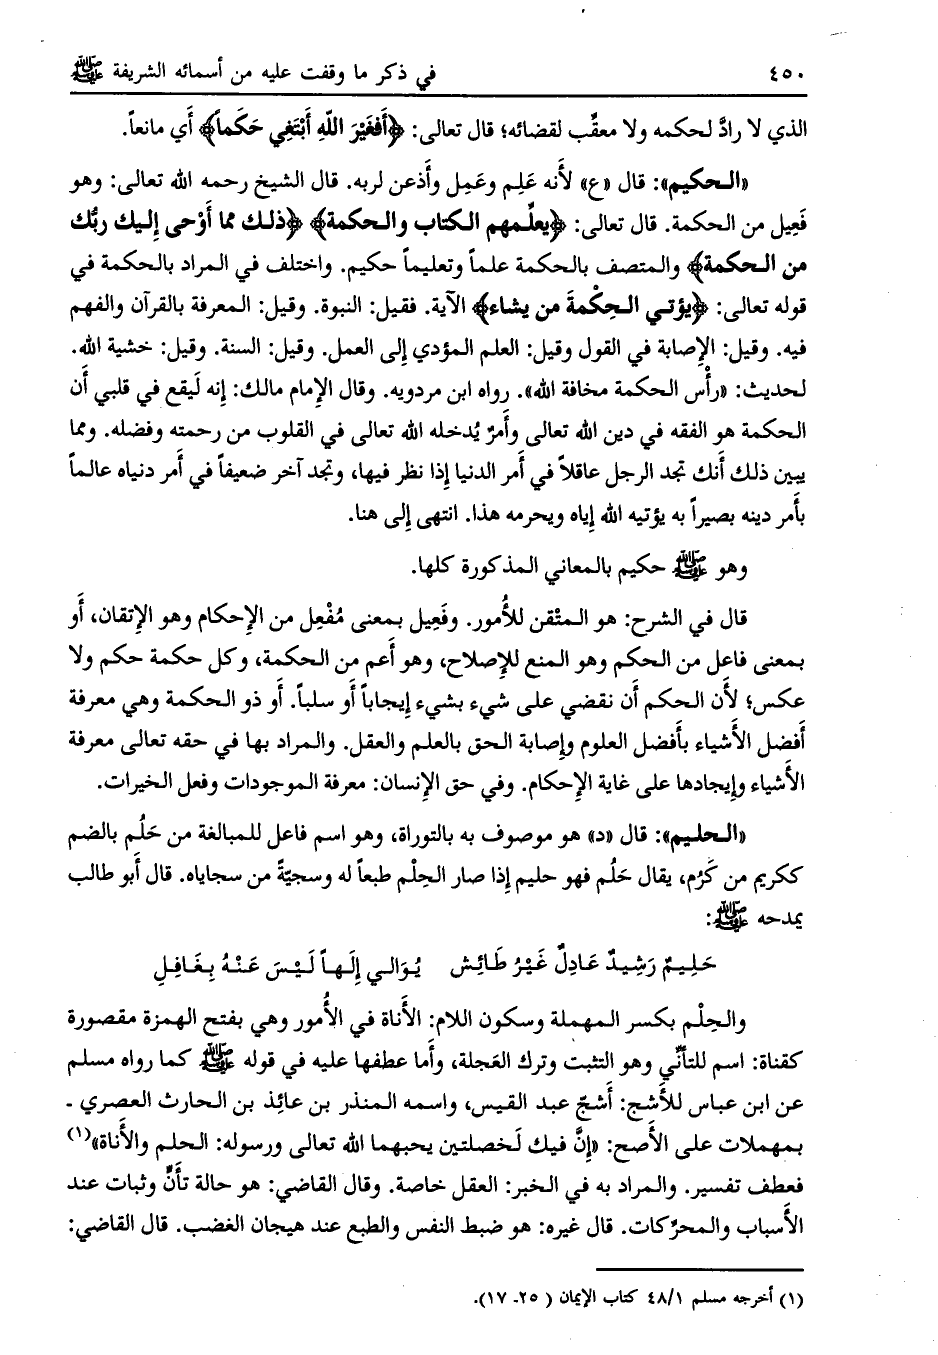 ٤٥٠ في ذكر ما وقفت عليه من أسمائه الشريفة ﷺ
الذي لا رادَّ لحكمه ولا معقِّب لقضائه؛ قال تعالى: ﴿أَفغَيْرَ اللَّهِ أَبْتَغِي حَكَماً﴾ أَي مانعاً.
«الـحكيم»: قال «ع» لأَنه عَلِم وعَمِل وأَذعن لربه. قال الشيخ رحمه الله تعالى: وهو
فَعِيل من الحكمة. قال تعالى: ﴿يعلِّمهم الكتاب والـحكمة﴾ ﴿ذلـك مما أَوْحى إِليك ربُّك
من الـحكمة﴾ والمتصف بالحكمة علماً وتعليماً حكيم. واختلف في المراد بالحكمة في
قوله تعالى: ﴿يؤتـي الـحِكْمةَ من يشاء﴾ الآية. فقيل: النبوة. وقيل: المعرفة بالقرآن والفهم
فيه. وقيل: الإِصابة في القول وقيل: العلم المؤدي إِلى العمل. وقيل: السنة. وقيل: خشية الله.
لحديث: «رأْس الحكمة مخافة الله». رواه ابن مردويه. وقال الإِمام مالك: إِنه لَيقع في قلبي أَن
الحكمة هو الفقه في دين الله تعالى وأَمرٌ يُدخله الله تعالى في القلوب من رحمته وفضله. ومما
يبين ذلك أَنك تجد الرجل عاقلاً في أَمر الدنيا إِذا نظر فيها، وتجد آخر ضعيفاً في أَمر دنياه عالماً
بأَمر دينه بصيراً به يؤتيه الله إِياه ويحرمه هذا. انتهى إِلى هنا.
وهو ﷺ حكيم بالمعاني المذكورة كلها.
قال في الشرح: هو المتْقن للأُمور. وفَعِيل بمعنى مُفْعِل من الإِحكام وهو الإِتقان، أَو
بمعنى فاعل من الحكم وهو المنع للإِصلاح، وهو أَعم من الحكمة، وكل حكمة حكم ولا
عكس؛ لأَن الحكم أَن نقضي على شيء بشيء إِيجاباً أَو سلباً. أَو ذو الحكمة وهي معرفة
أَفضل الأَشياء بأَفضل العلوم وإِصابة الحق بالعلم والعقل. والمراد بها في حقه تعالى معرفة
الأَشياء وإِيجادها على غاية الإِحكام. وفي حق الإِنسان: معرفة الموجودات وفعل الخيرات.
«الـحليم»: قال «د» هو موصوف به بالتوراة، وهو اسم فاعل للمبالغة من حَلُم بالضم
ككريم من كَرُم، يقال حَلُم فهو حليم إِذا صار الحِلْم طبعاً له وسجيّةً من سجاياه. قال أَبو طالب
يمدحه ﷺ:
حَلِـيمٌ رَشِيدٌ عَادِلٌ غَيْرُ طَائِش يُـوَالـي إِلَـهاً لَـيْـسَ عَنْـهُ بِـغَـافِـلِ
والحِلْم بكسر المهملة وسكون اللام: الأَناة في الأُمور وهي بفتح الهمزة مقصورة
كقناة: اسم للتأَنِّي وهو التثبت وترك العَجلة، وأَما عطفها عليه في قوله ﷺ كما رواه مسلم
عن ابن عباس للأَشج: أَشجّ عبد القيس، واسمه المنذر بن عائِذ بن الحارث العصري ـ
بمهملات على الأَصح: «إِنَّ فيك لَخصلتين يحبهما الله تعالى ورسوله: الحلم والأَناة»(١)
فعطف تفسير. والمراد به في الخبر: العقل خاصة. وقال القاضي: هو حالة تأَنٍّ وثبات عند
الأَسباب والمحرِّكات. قال غيره: هو ضبط النفس والطبع عند هيجان الغضب. قال القاضي:
(١) أخرجه مسلم ٤٨/١ كتاب الإيمان ( ٢٥ـ ١٧).